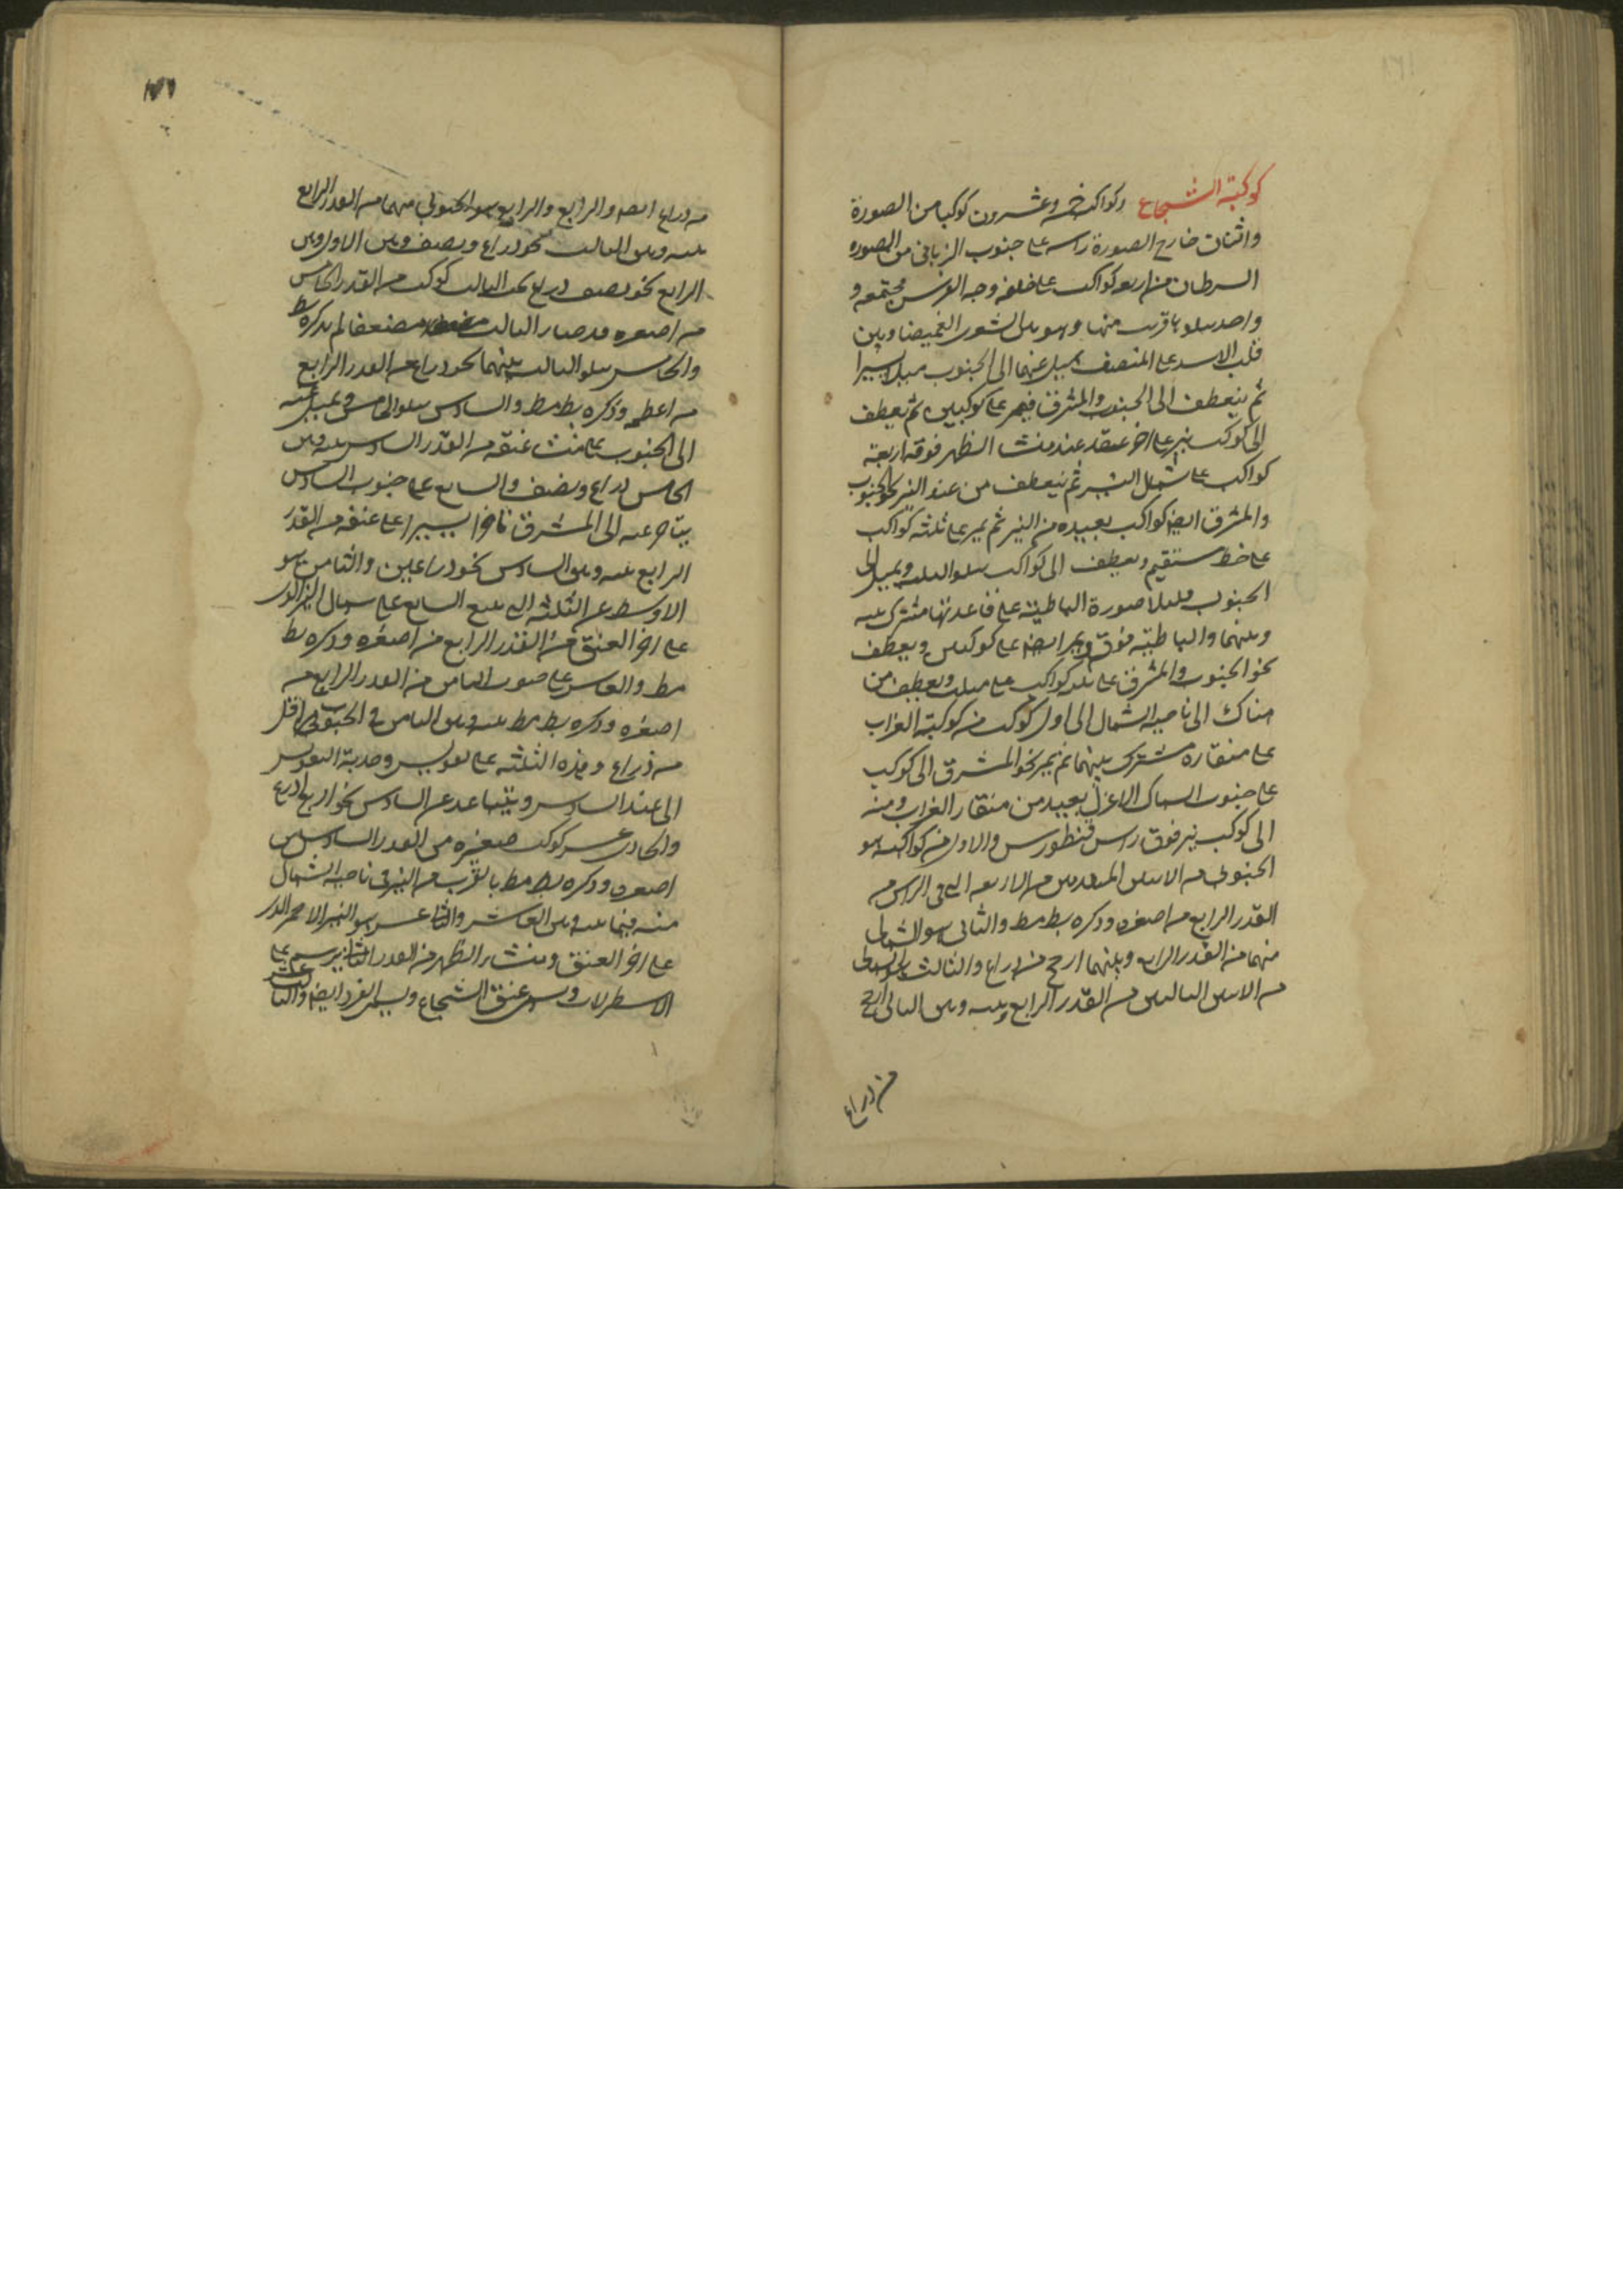 كوكبة الشجاع وكواكبه خمسة وعشرون كوكبا من الصورة
واثنان خارج الصورة راسه على جنوب الزبانى من الصوره
السرطان من اربعه كواكب على خلقه وجه الفرس مجتمعه و
واحد يتلو بالقرب منها وهو بين الشعرى الغميصا وبين
قلب الاسد على المنتصف يميل عنهما الى الجنوب ميلا يسيرا
ثم ينعطف الى الجنوب والمشرق فيمر على كوكبين ثم يعطف
الى كوكب نير على اخر عنقه عند منشا الظهر فوقه اربعة
كواكب على شمال النير ثم ينعطف من عند النير نحو الجنوب
والمشرق ايضا كواكب بعيده من النير ثم يمر على ثلثه كواكب
على خط مستقيم ويعطف الى كواكب يتلو الثلثه ويميل الى
الجنوب قليلا صورة الباطية على قاعدتها مشترك بينه
وبينهما والباطية فوق ويمر ايضا على كوكبين ويعطف
نحو الجنوب والمشرق على ثلثه كواكب على مثلث ويعطف من
هناك الى ناحيه الشمال الى اول كوكب من كوكبة الغراب
على منقاره مشترك بينهما ثم يمر نحو المشرق الى كوكب
على جنوب السماك الاعزل بعيد من منقار الغراب ومنه
الى كوكب نير فوق راس قنطورس والاول من كواكبه هو
الجنوبى من الاثنين المتقدمين من الاربعه التى فى الراس من
القدر الرابع من اصغره وذكره بطلميوس والثانى هو الشمالى
منهما من القدر الرابع وبينهما ارجح من ذراع والثالث هو الشمالى
من الاثنين التاليين من القدر الرابع وبينه وبين الثانى ارجح
من ذراع
من ذراع ايضا والرابع والرابع هو الجنوبى منهما من القدر الرابع
بينه وبين الثالث نحو ذراع ونصف وبين الاول وبين
الرابع نحو نصف ذراع تحت الثالث كوكب من القدر الخامس
من اصغره وقد صار الثالث مضعفا لم يذكره بط
والخامس يتلو الثالث بينهما نحو ذراع من القدر الرابع
من اعظمه وذكره بط مط والسادس يتلو الخامس ويميل عنه
الى الجنوب على منشا عنقه من القدر السادس بينه وبين
الخامس ذراع ونصف والسابع على جنوب السادس
يتاخر عنه الى المشرق تاخرا يسيرا على عنقه من القدر
الرابع بينه وبين السادس نحو ذراعين والثامن هو
الاوسط من الثلثه التى تتبع السابع على شمال النير الذى
على اخر العنق من القدر الرابع من اصغره وذكره بط
مط والتاسع على جنوب الثامن من القدر الرابع من
اصغره وذكره بط مط بينه وبين الثامن فى الجنوب اقل
من ذراع وهذه الثلثه على تقويس وحدبة التقويس
الى عند السادس ويتباعد عن السادس نحو اربع اذرع
والحادى عشر كوكب صغيره من القدر السادس من
اصغره وذكره بط مط بالقرب من النير فى ناحيه الشمال
منه فيما بينه وبين العاشر والثانى عشر هو النير الاحمر الذى
على اخر العنق ومنشا الظهر من القدر الثانى يرسم على
الاسطرلاب ويسمى عنق الشجاع ويسمى الفرد ايضا والثالث عشر